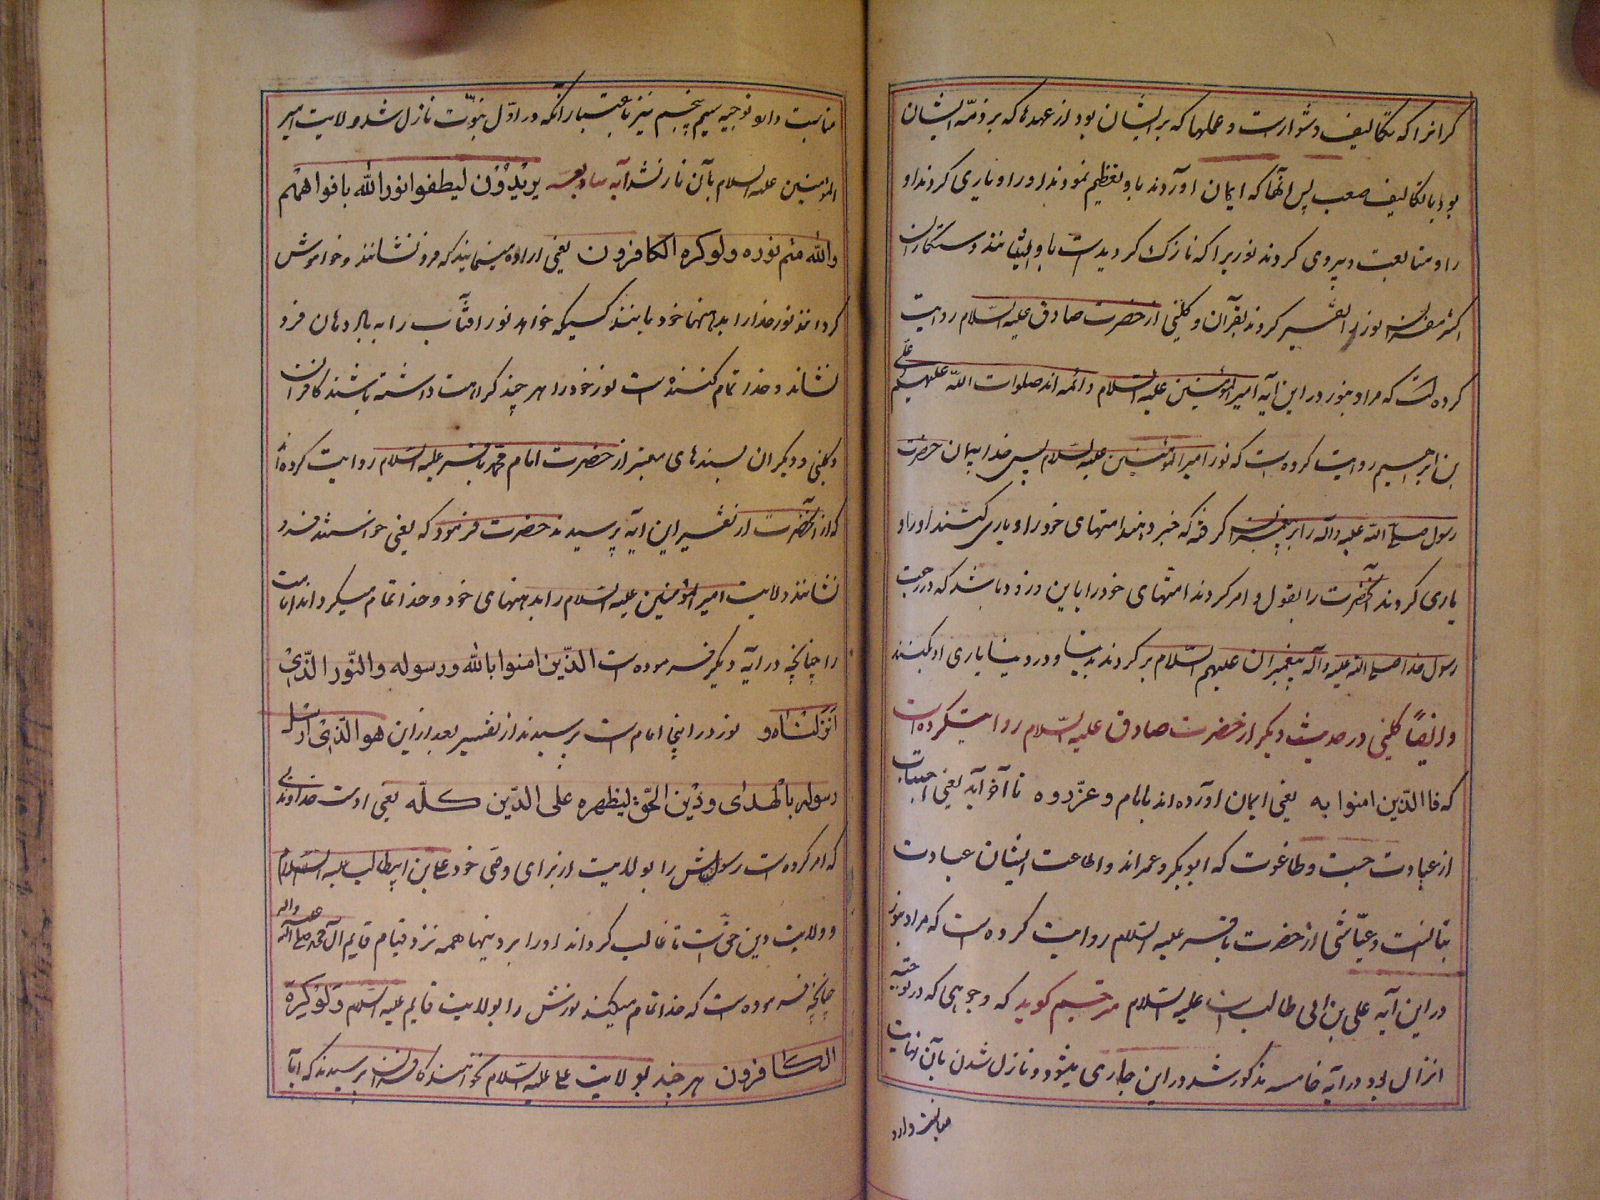 کرانرا که تکالیف دشوارست و عملها که بر ایشان بود از عهدها که بر ذمّه ایشان
بود با تکالیف صعب پس آنها که ایمان اوردند باو و تعظیم نمودند او را و یاری کردند او
را و متابعت و پیروی کردند نوریرا که نازل کردیده است با او ایشانند رستکاران
اکثر مفسران نور را تفسیر کردند بقرآن و کلینی از حضرت صادق علیه السّلام روایت
کرده است که مراد بنور در این ایه امیر المؤمنین علیه السّلام و ائمه اند صلوات اللّه علیهم علّی
بن ابراهیم روایت کرده است که نور امیر المؤمنین علیه السّلام پس خدا پیمان حضرت
رسول صلی اللّه علیه و اله را بر پیغمبران کرفته که خبر دهند امتهای خود را و یاری کنند او را و
یاری کردند آنحضرت را بقول و امر کردند امتهای خود را باین و زود باشد که در رجعت
رسول خدا صلی اللّه علیه و اله پیغمبران علیهم السّلام بر کردند بدنیا و در دنیا یاری او بکنند
و ایضًا کلینی در حدیث دیکر از حضرت صادق علیه السّلام روایت کرده است
که فاالّذین امنوا به یعنی ایمان اورده اند بامام و عزّروه تا آخر آیه یعنی اجتناب
از عبادت جبت و طاغوت که ابوبکر و عمر اند و اطاعت ایشان عبادت
بتانست و عیّاشی از حضرت باقر علیه السّلام روایت کرده است که مراد بنور
در این آیه علی بن ابی طالب است علیه السّلام مترجم کوید که وجوهی که در توجیه
انزال بود در ایه خامسه مذکور شد در این جاری میشود و نازل شدن بآن نهایت
مناسبت دارد
مناسبت دارد و توجیه سیم پنجم نیز باعتبار آنکه در اوّل نبوّت نازل شد و ولایت امیر
المؤمنین علیه السلام بآن نازل شد آیه سابعه یریدون لیطفوا نور اللّه بافواههم
واللّه متم نوره و لو کره الکافرون یعنی اراده مینمایند که فرو نشانند و خواموش
کردانند نور خدا را بدهنها خود مانند کسیکه خواهد نور افتاب را به باد دهان فرو
نشاند و خدا تمام کننده است نور خود را هر چند کراهت داشته باشند کافران
و کلینی و دیکران بسندهای معتبر از حضرت امام محمد باقر علیه السّلام روایت کرده اند
که از آنحضرت از تفسیر این ایه پرسیدند حضرت فرمود که یعنی خواستند فرو
نشانند ولایت امیر المؤمنین علیه السّلام را بدهنهای خود و خدا تمام میکرداند امامت
را چنانچه در ایه دیکر فرموده است الّذین امنوا باللّه و رسوله و النّور الّذی
انزلناه و نور در اینجا امام است پرسیدند از تفسیر بعد از این هو الّذی ارسل
رسوله بالهدی و دین الحقّ لیظهره علی الدّین کلّه یعنی اوست خداوندی
که امر کرده است رسولش را بولایت از برای وصی خود علی بن ابیطالب علیه السّلام
و ولایت دین حقّست تا غالب کرداند او را بر دینها همه نزد قیام قایم آل محمد صلی اللّه علیه واله
چنانچه فرموده است که خدا تمام میکند نورش را بولایت قایم علیه السّلام وَلَو کره
الکافرون هر چند بولایت علی علیه السّلام نخواهند کافران پرسیدند که ایا